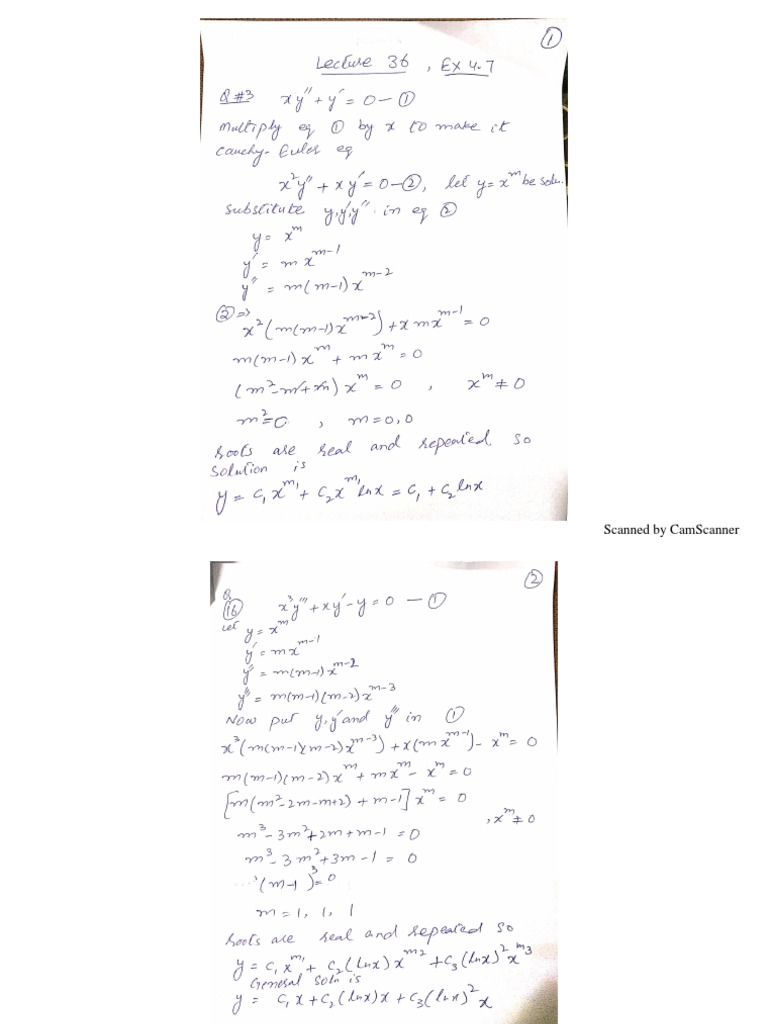 ①
Lecture 36, Ex 4.7
Q#3 xy'' + y' = 0 — ①
Multiply eq ① by x to make it
Cauchy-Euler eq
x²y'' + xy' = 0 — ②, let y = x^m be soln.
Substitute y, y', y'' in eq ②
y = x^m
y' = m x^{m-1}
y'' = m(m-1) x^{m-2}
② ⇒
x²(m(m-1)x^{m-2}) + x m x^{m-1} = 0
m(m-1)x^m + m x^m = 0
(m² - m + m) x^m = 0 , x^m ≠ 0
m² = 0 , m = 0, 0
roots are real and repeated so
solution is
y = c₁x^{m₁} + c₂x^{m₁} ln x = c₁ + c₂ ln x
Scanned by CamScanner
②
Q 16 x³y''' + xy' - y = 0 — ①
Let y = x^m
y' = m x^{m-1}
y'' = m(m-1) x^{m-2}
y''' = m(m-1)(m-2) x^{m-3}
Now put y, y' and y''' in ①
x³(m(m-1)(m-2)x^{m-3}) + x(m x^{m-1}) - x^m = 0
m(m-1)(m-2)x^m + m x^m - x^m = 0
[m(m² - 2m - m + 2) + m - 1] x^m = 0
, x^m ≠ 0
m³ - 3m² + 2m + m - 1 = 0
m³ - 3m² + 3m - 1 = 0
(m-1)³ = 0
m = 1, 1, 1
roots are real and repeated so
y = c₁x^{m₁} + c₂(ln x) x^{m₂} + c₃(ln x)² x^{m₃}
General soln is
y = c₁x + c₂(ln x)x + c₃(ln x)² x